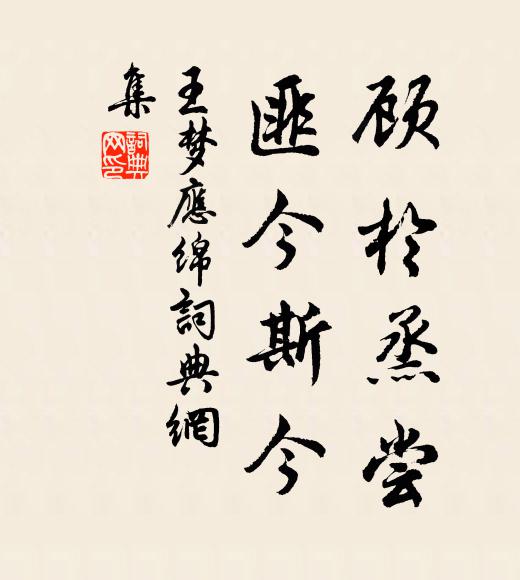 顾於烝尝
匪今斯今
王梦應绵詞典網
集
詞典网印